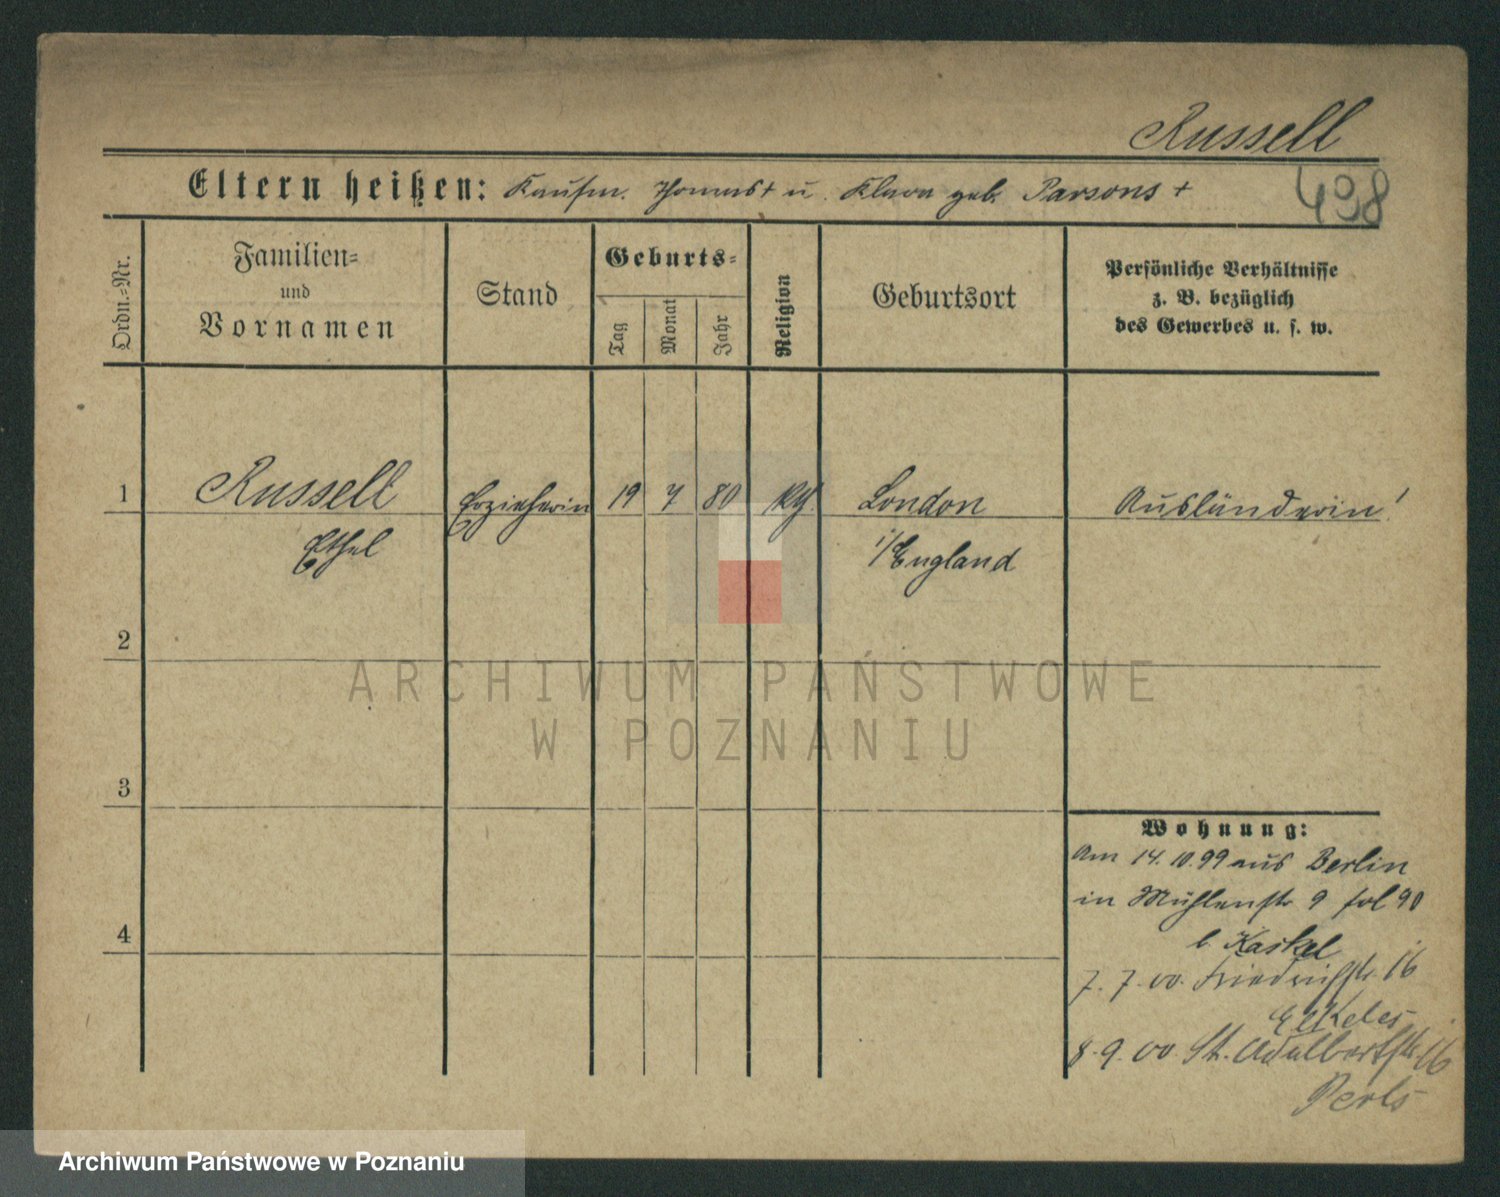 Russell
Eltern heißen: Kaufm. Thomas † u. Klara geb. Parsons †
498
Ordn.-Nr.
Familien-
und
Vornamen
Stand
Geburts-
Tag
Monat
Jahr
Religion
Geburtsort
Persönliche Verhältnisse
z. B. bezüglich
des Gewerbes u. s. w.
1
Russell
Ethel
Erzieherin
19
7
80
London
i/England
Ausländerin!
2
ARCHIWUM PAŃSTWOWE
W POZNANIU
3
4
Wohnung:
Am 14.10.99 aus Berlin
in Mühlenstr 9 fol 90
b. Kaskel
7. 7. 00. Friedrichstr. 16
8. 9. 00 St. Adalbertstr. 16
Perls
Archiwum Państwowe w Poznaniu